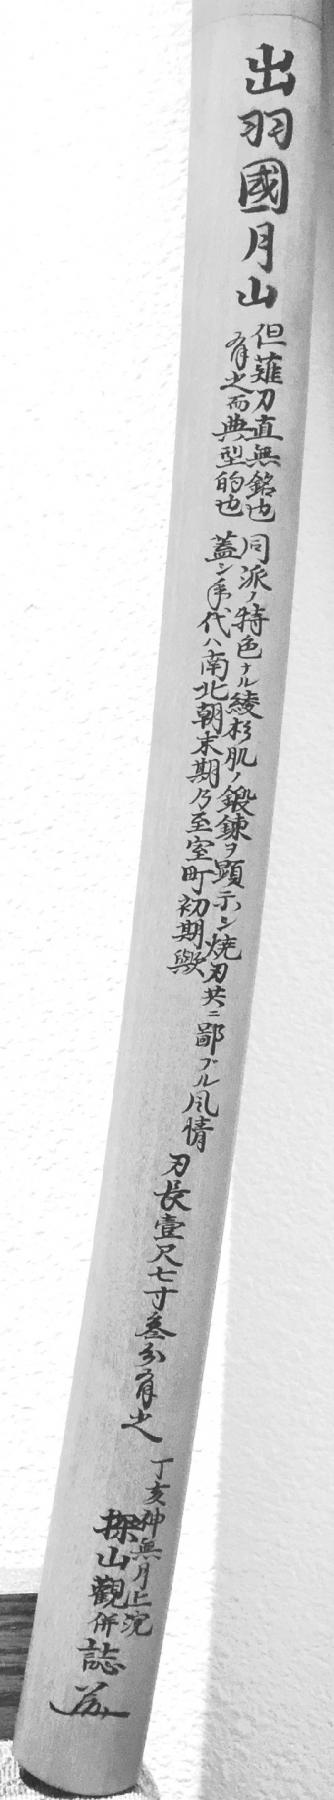 出羽國月山
但薙刀直無銘也
同派ノ特色ナル綾杉肌ノ鍛錬ヲ顕示シ焼刃共ニ鄙ブル風情
有之而典型的也
蓋シ年代ハ南北朝末期乃至室町初期歟
刃長壹尺七寸叁分有之
丁亥神無月上浣
探山觀併誌